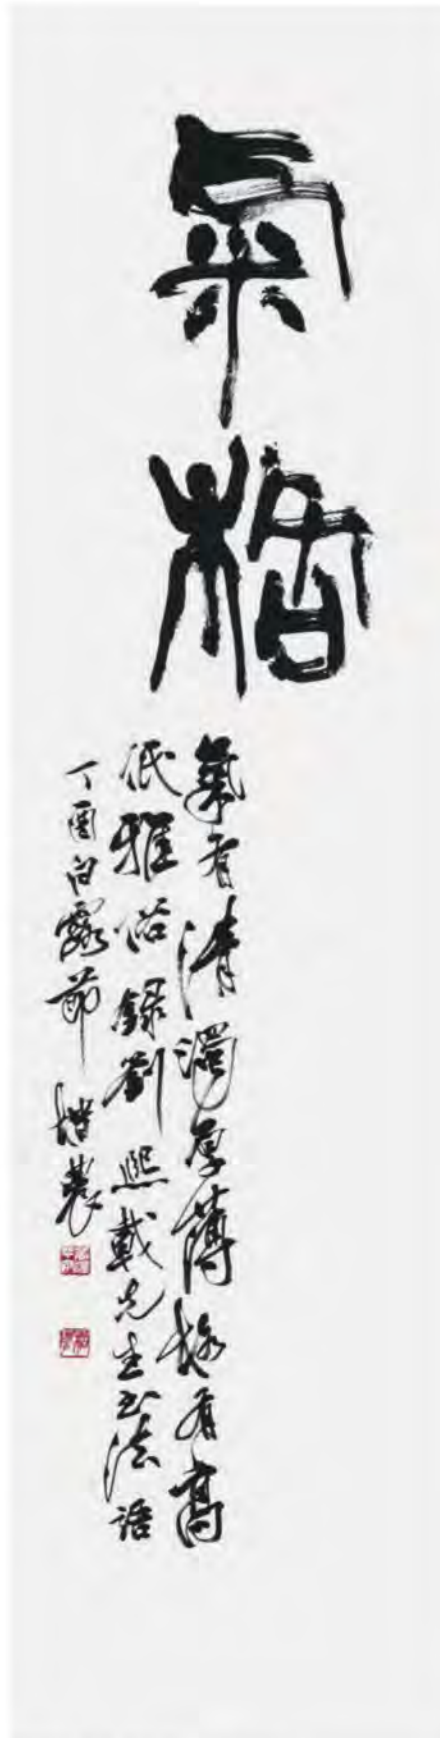 氣格
氣有清濁厚薄格有高
低雅俗錄劉熙載先生书法語
丁酉白露節